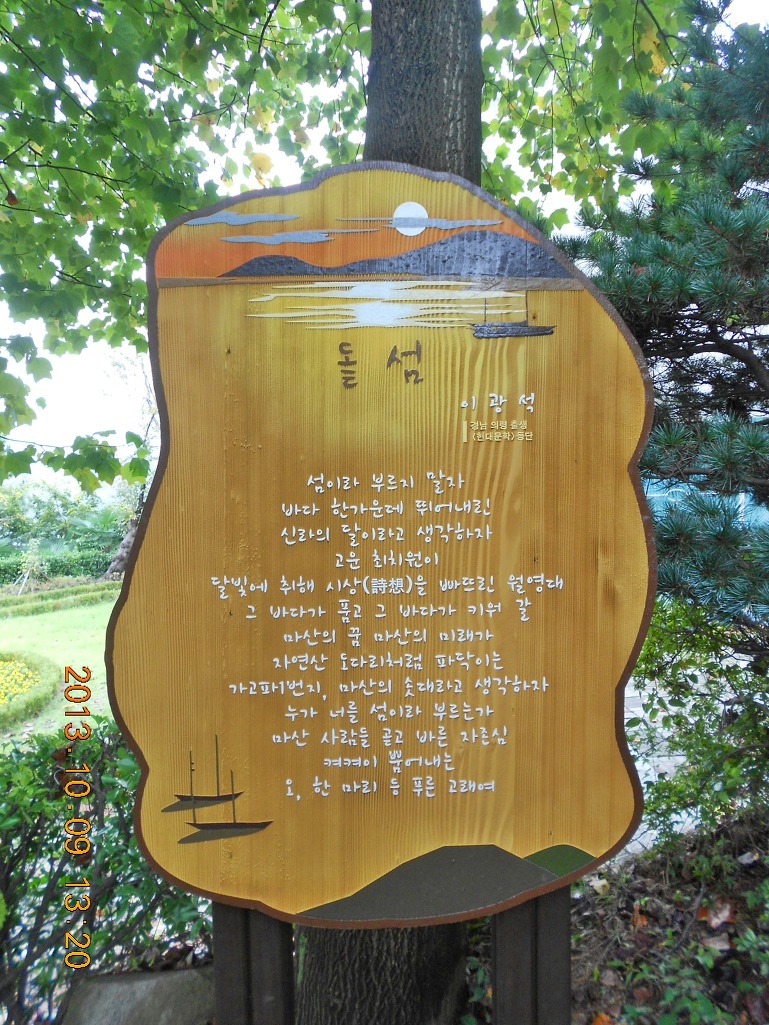 돝 섬
이 광 석
경남 의령 출생
<현대문학> 등단
섬이라 부르지 말자
바다 한가운데 뛰어내린
신라의 달이라고 생각하자
고운 최치원이
달빛에 취해 시상(詩想)을 빠뜨린 월영대
그 바다가 품고 그 바다가 키워 갈
마산의 꿈 마산의 미래가
자연산 도다리처럼 파닥이는
가고파1번지, 마산의 솟대라고 생각하자
누가 너를 섬이라 부르는가
마산 사람들 곧고 바른 자존심
켜켜이 뿜어내는
오, 한 마리 등 푸른 고래여
2013.10.09 13:20